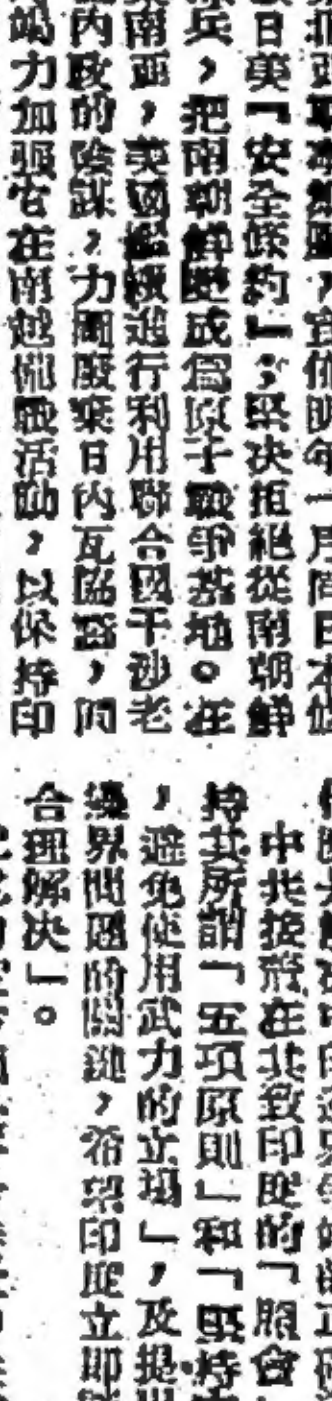 日美「安全條約」；堅決拒絕從南朝鮮
兵，把南朝鮮變成爲原子戰爭基地。在
南亞，美國繼續進行利用聯合國干涉老
內政的陰謀，力圖廢棄日內瓦協議，同
竭力加強它在南越備戰活動，以保持印
中共接着在其致印度的「照會
持其所謂「五項原則」和「堅持
，避免使用武力的立場」，及提出
邊界問題的關鍵，希望印度立即
合理解決」。